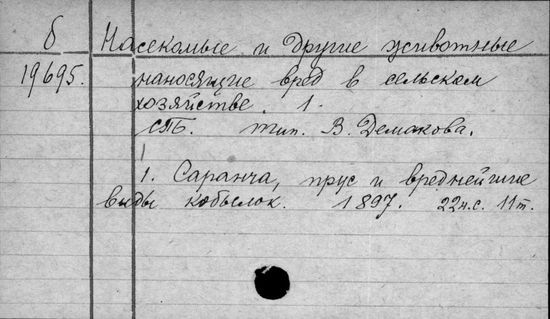 б Насекомые и другие животные
19695. наносящие вред в сельском
хозяйстве. 1.
СПБ. тип. В. Демакова.
1. Саранча, прус и вреднейшие
виды кобылок. 1897. 22н.с. 11т.